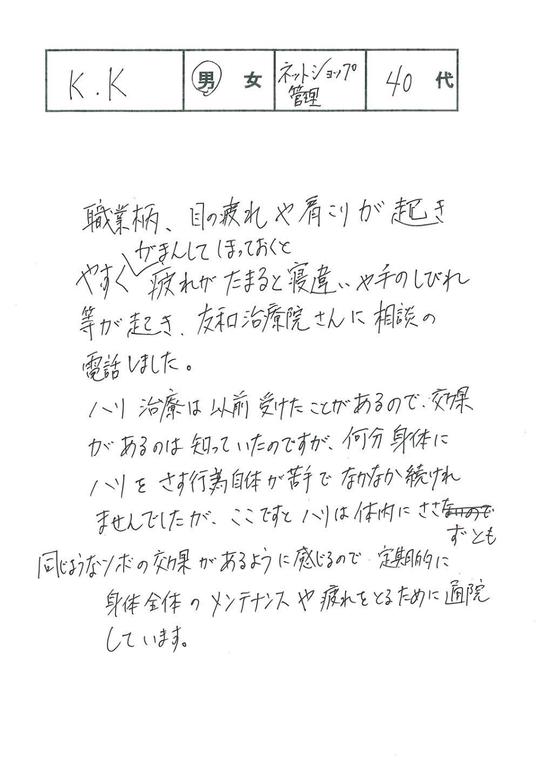 K.K 男 女 ネットショップ管理 40 代
職業柄、目の疲れや肩こりが起き
がまんしてほっておくと
やすく 疲れがたまると寝違いや手のしびれ
等が起き、友和治療院さんに相談の
電話しました。
ハリ治療は以前受けたことがあるので、効果
があるのは知っていたのですが、何分身体に
ハリをさす行為自体が苦手でなかなか続けれ
ませんでしたが、ここですとハリは体内にささなので
ずとも
同じようなツボの効果があるように感じるので 定期的に
身体全体のメンテナンスや疲れをとるために通院
しています。